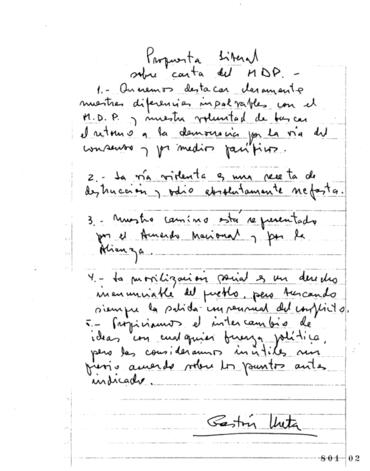 Propuesta Liberal
sobre carta del MDP.-
1.- Queremos destacar claramente
nuestras diferencias insalvables con el
M.D.P. y nuestra voluntad de buscar
el retorno a la democracia por la vía del
consenso y por medios pacíficos.
2.- La vía violenta es una receta de
destrucción y odio absolutamente nefasta.
3.- Nuestro camino está representado
por el Acuerdo Nacional y por la
Alianza.
4.- La movilización social es un derecho
irrenunciable del pueblo, pero buscando
siempre la salida consensual del conflicto.
5.- Propiciamos el intercambio de
ideas con cualquier fuerza política,
pero las consideramos inútiles sin
previo acuerdo sobre los puntos antes
indicados.
Gastón Ureta
801 02